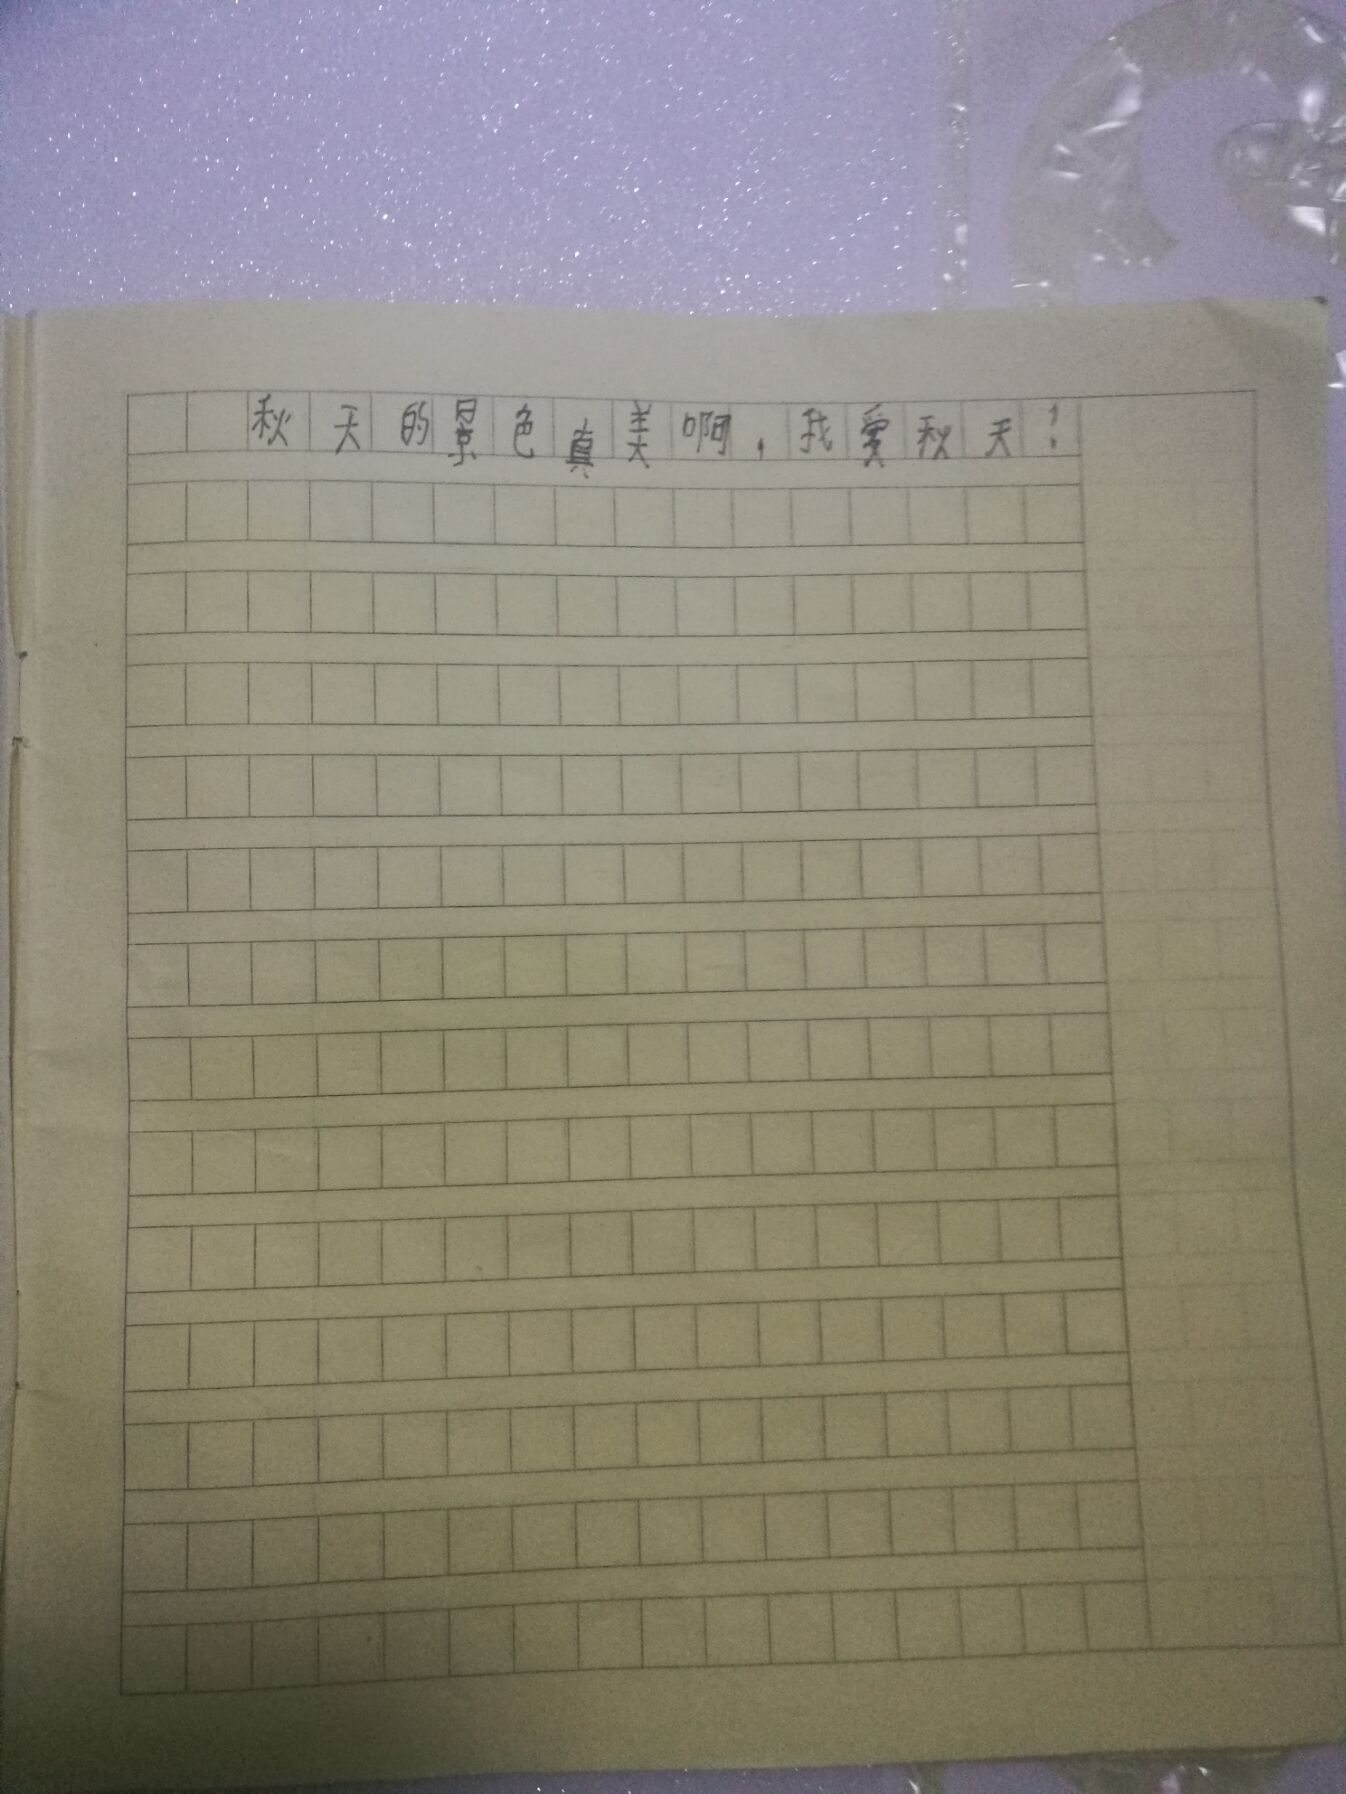 秋天的景色真美啊，我爱秋天！